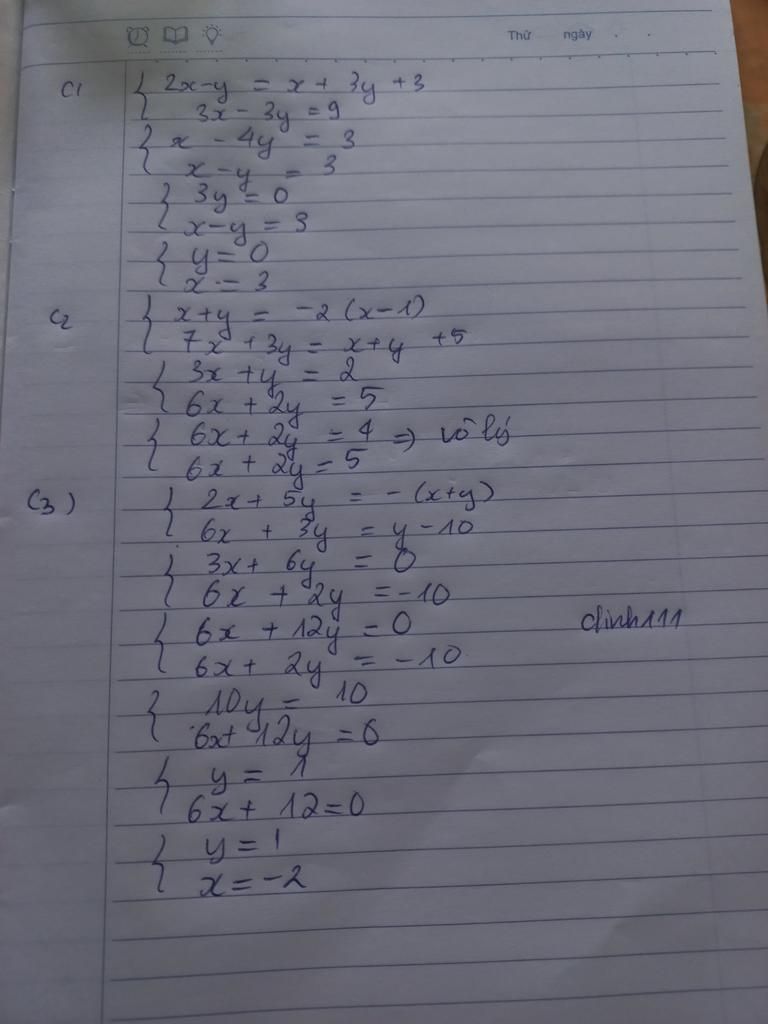 Thứ ngày . .
C1 { 2x-y = x + 3y +3
3x - 3y = 9
{ x - 4y = 3
x - y = 3
{ 3y = 0
x-y = 3
{ y = 0
x = 3
C2 { x+y = -2 (x-1)
7x + 3y = x+y +5
{ 3x + y = 2
6x + 2y = 5
{ 6x + 2y = 4 => vô lý
6x + 2y = 5
C3) { 2x + 5y = - (x+y)
6x + 3y = y - 10
{ 3x + 6y = 0
6x + 2y = -10
{ 6x + 12y = 0
dinh111
6x + 2y = -10
{ 10y = 10
6x+ 12y = 0
{ y = 1
6x + 12=0
{ y = 1
x = -2